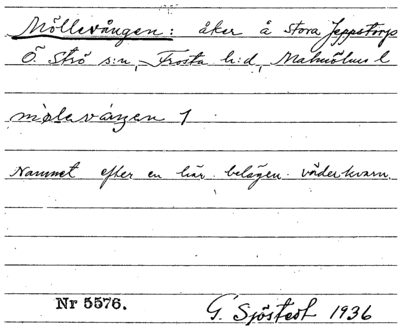 Möllevången: åker å stora Jeppstorp
Ö. Strö s:n, Frosta h:d, Malmöhus l
mølevången 1
Namnet efter en här belägen väderkvarn.
Nr 5576. G. Sjöstedt 1936